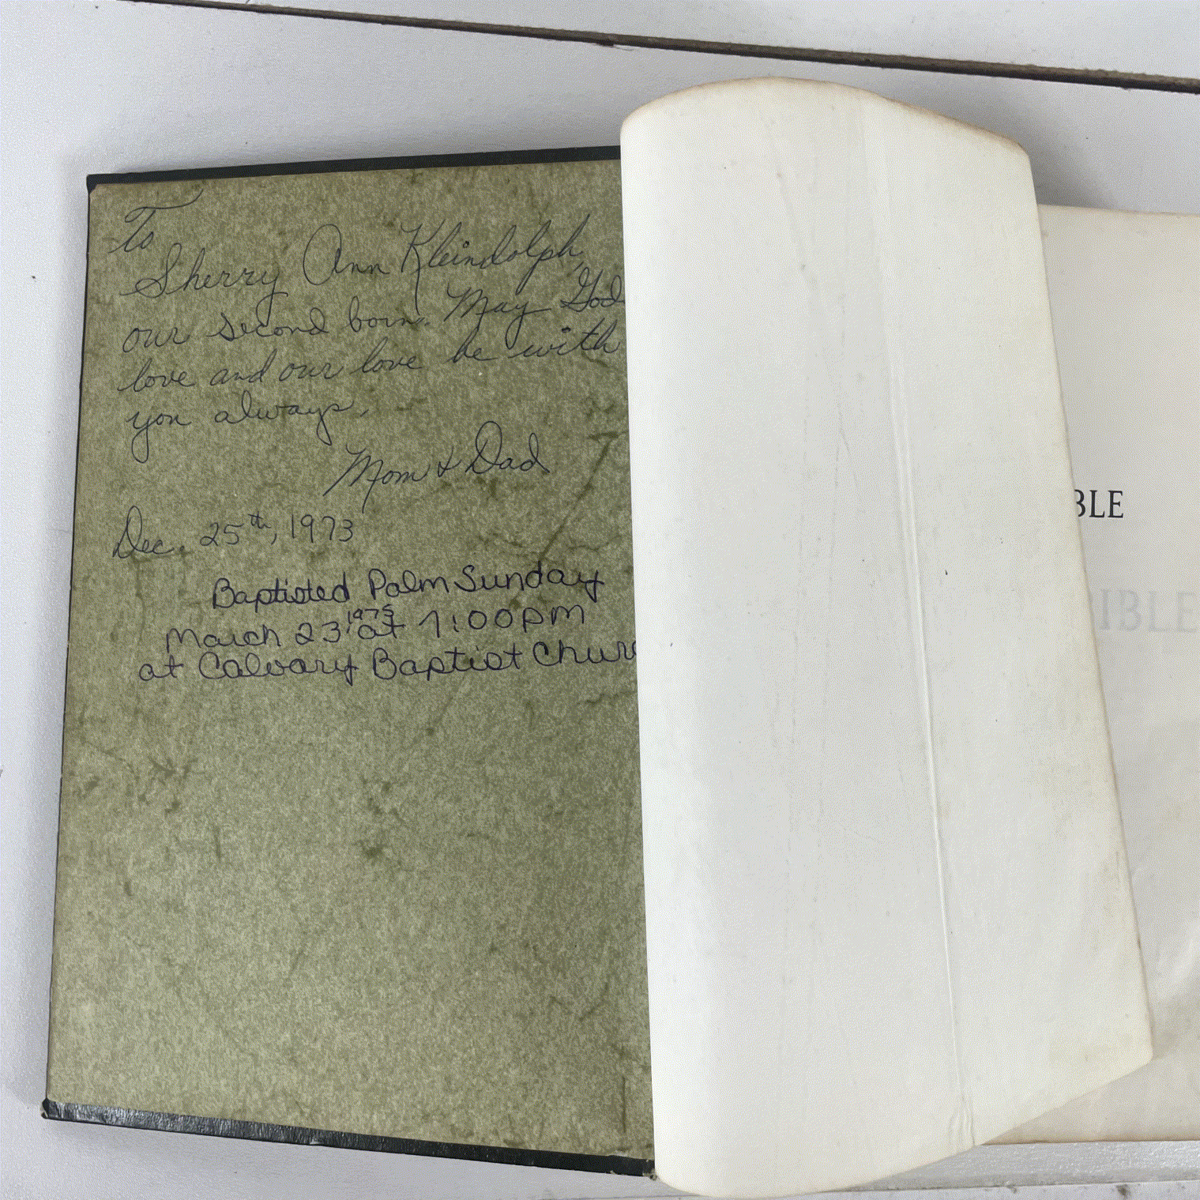 To
Sherry Ann Kleindolph,
our second born. May God
love and our love be with
you always,
Mom & Dad
Dec. 25th, 1973
Baptisted Palm Sunday
1975
March 23 at 7:00pm
at Calvary Baptist Chur
BLE
IBLE